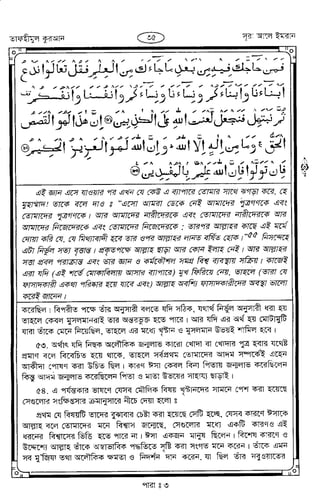 তাফহীমুল কুরআন ৩৫ সূরা আলে ইমরান
فَمَنْ حَاجَّكَ فِيهِ مِنْ بَعْدِ مَا جَاءَكَ مِنَ الْعِلْمِ فَقُلْ تَعَالَوْا نَدْعُ
أَبْنَاءَنَا وَأَبْنَاءَكُمْ وَنِسَاءَنَا وَنِسَاءَكُمْ وَأَنْفُسَنَا وَأَنْفُسَكُمْ
ثُمَّ نَبْتَهِلْ فَنَجْعَلْ لَعْنَتَ اللَّهِ عَلَى الْكَاذِبِينَ ﴿٦١﴾ إِنَّ هَٰذَا لَهُوَ الْقَصَصُ
الْحَقُّ وَمَا مِنْ إِلَٰهٍ إِلَّا اللَّهُ وَإِنَّ اللَّهَ لَهُوَ الْعَزِيزُ الْحَكِيمُ ﴿٦٢﴾
فَإِنْ تَوَلَّوْا فَإِنَّ اللَّهَ عَلِيمٌ بِالْمُفْسِدِينَ ﴿٦٣﴾
এই জ্ঞান এসে যাওয়ার পর এখন যে কেউ এ ব্যাপারে তোমার সাথে ঝগড়া করে, হে
মুহাম্মাদ! তাকে বলে দাও ঃ "এসো আমরা ডেকে নেই আমাদের পুত্রগণকে এবং
তোমাদের পুত্রগণকে। আর আমাদের নারীদেরকে এবং তোমাদের নারীদেরকে আর
আমাদের নিজেদেরকে এবং তোমাদের নিজেদেরকে ; তারপর আল্লাহর কাছে এই মর্মে
দোয়া করি যে, যে মিথ্যাবাদী হবে তার ওপর আল্লাহর লানত বর্ষিত হোক।"৫৫ নিসন্দেহে
এটা নির্ভুল সত্য বৃত্তান্ত। প্রকৃতপক্ষে আল্লাহ ছাড়া আর কোন ইলাহ নেই। আর আল্লাহর
সত্তা প্রবল পরাক্রান্ত এবং তার জ্ঞান ও কর্মকৌশল সমগ্র বিশ্ব ব্যবস্থায় সক্রিয়। কাজেই
এরা যদি (এই শর্তে মোকাবিলায় আসার ব্যাপারে) মুখ ফিরিয়ে নেয়, তাহলে (তারা যে
ফাসাদকারী একথা পরিষ্কার হয়ে যাবে এবং) আল্লাহ অবশ্যি ফাসাদকারীদের অবস্থা ভালো
করেই জানেন।
করেছিল। বিপরীত পক্ষে তাঁর অনুসারী বলতে যদি সঠিক, যথার্থ নির্ভুল অনুসারী ধরা হয়
তাহলে কেবল মুসলমানরাই তার অন্তরভুক্ত হতে পারে। আর যদি এর অর্থ হয় মোটামুটি
যারা তাঁকে মেনে নিয়েছিল, তাহলে এর মধ্যে খৃস্টান ও মুসলমান উভয়ই শামিল হবে।
৫৩. অর্থাৎ যদি নিছক অলৌকিক জন্মলাভ কারো খোদা বা খোদার পুত্র হবার যথেষ্ট
প্রমাণ বলে বিবেচিত হয়ে থাকে, তাহলে সর্বপ্রথম তোমাদের আদম সম্পর্কেই এহেন
আকীদা পোষণ করা উচিত ছিল। কারণ ঈসা কেবল বিনা পিতায় জন্মলাভ করেছিলেন
কিন্তু আদম জন্মলাভ করেছিলেন পিতা ও মাতা উভয়ের সাহায্য ছাড়াই।
৫৪. এ পর্যন্তকার ভাষণে যেসব মৌলিক বিষয় খৃস্টানদের সামনে পেশ করা হয়েছে
সেগুলোর সংক্ষিপ্তসার ক্রমানুসারে নীচে দেয়া হলো ঃ
প্রথম যে বিষয়টি তাদের বুঝাবার চেষ্টা করা হয়েছে সেটি হচ্ছে, যেসব কারণে ঈসাকে
আল্লাহ বলে তোমাদের মনে বিশ্বাস জন্মেছে, সেগুলোর মধ্যে একটি কারণও এই
ধরনের বিশ্বাসের ভিত্তি হতে পারে না। ঈসা একজন মানুষ ছিলেন। বিশেষ কারণে ও
উদ্দেশ্যে আল্লাহ তাঁকে অস্বাভাবিক পদ্ধতিতে সৃষ্টি করা সংগত মনে করেন। তাঁকে এমন
সব মু'জিযা তথা অলৌকিক ক্ষমতা ও নিদর্শন দান করেন, যা ছিল তাঁর নবুওয়াতের
পারা ঃ ৩